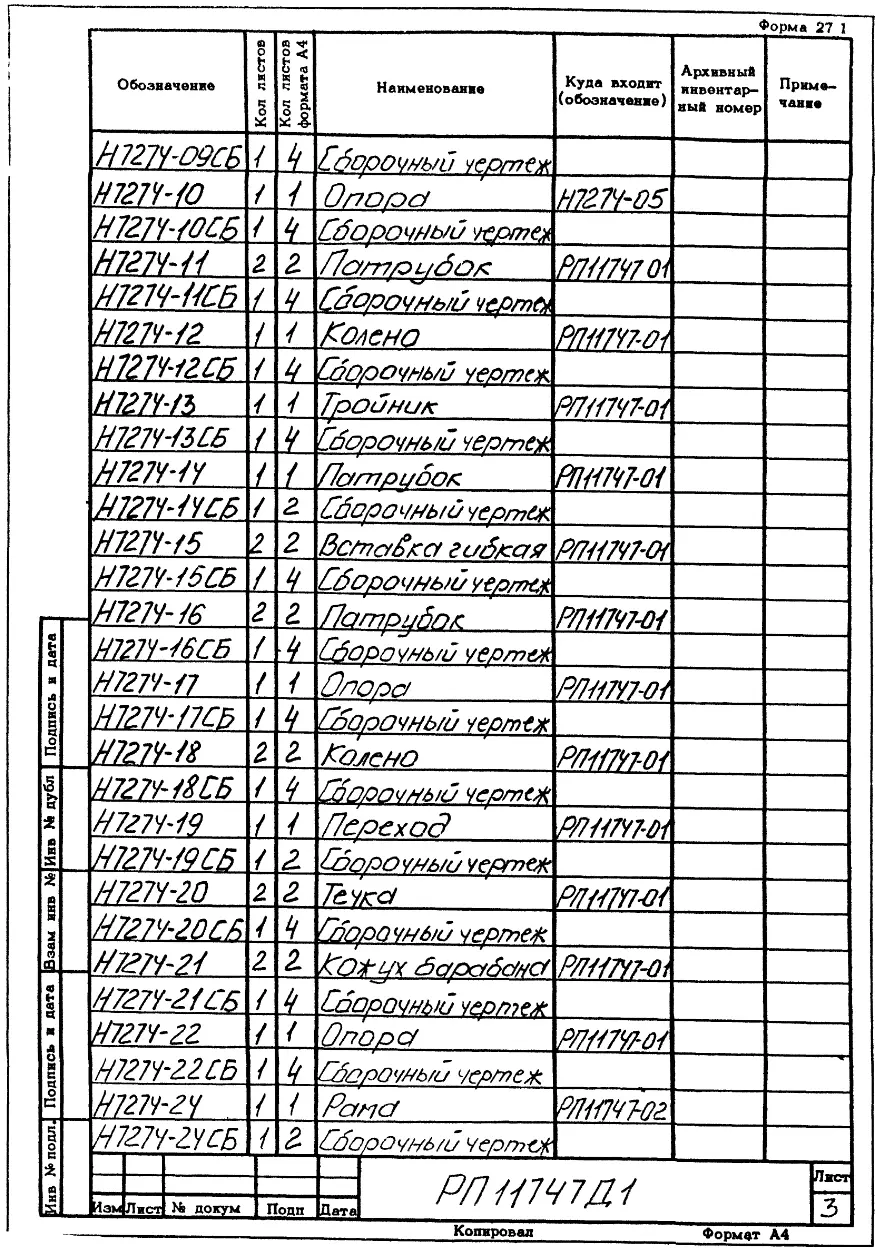 Форма 27 1
Обозначение Кол листов Кол листов формата А4 Наименование Куда входит (обозначение) Архивный инвентар-ный номер Приме-чание
Н7274-09СБ 1 4 Сборочный чертеж
Н7274-10 1 1 Опора Н7274-05
Н7274-10СБ 1 4 Сборочный чертеж
Н7274-11 2 2 Патрубок РП11747 01
Н7274-11СБ 1 4 Сборочный чертеж
Н7274-12 1 1 Колено РП11747-01
Н7274-12СБ 1 4 Сборочный чертеж
Н7274-13 1 1 Тройник РП11747-01
Н7274-13СБ 1 4 Сборочный чертеж
Н7274-14 1 1 Патрубок РП11747-01
Н7274-14СБ 1 2 Сборочный чертеж
Н7274-15 2 2 Вставка гибкая РП11747-01
Н7274-15СБ 1 4 Сборочный чертеж
Н7274-16 2 2 Патрубок РП11747-01
Н7274-16СБ 1 4 Сборочный чертеж
Н7274-17 1 1 Опора РП11747-01
Н7274-17СБ 1 4 Сборочный чертеж
Н7274-18 2 2 Колено РП11747-01
Н7274-18СБ 1 4 Сборочный чертеж
Н7274-19 1 1 Переход РП11747-01
Н7274-19СБ 1 2 Сборочный чертеж
Н7274-20 2 2 Течка РП11747-01
Н7274-20СБ 1 4 Сборочный чертеж
Н7274-21 2 2 Кожух барабана РП11747-01
Н7274-21СБ 1 4 Сборочный чертеж
Н7274-22 1 1 Опора РП11747-01
Н7274-22СБ 1 4 Сборочный чертеж
Н7274-24 1 1 Рама РП11747-02
Н7274-24СБ 1 2 Сборочный чертеж
Подпись и дата
Инв № дубл
Взам инв №
Подпись и дата
Инв № подл.
Изм Лист № докум Подп Дата
РП11747Д1
Лист
3
Копировал Формат А4